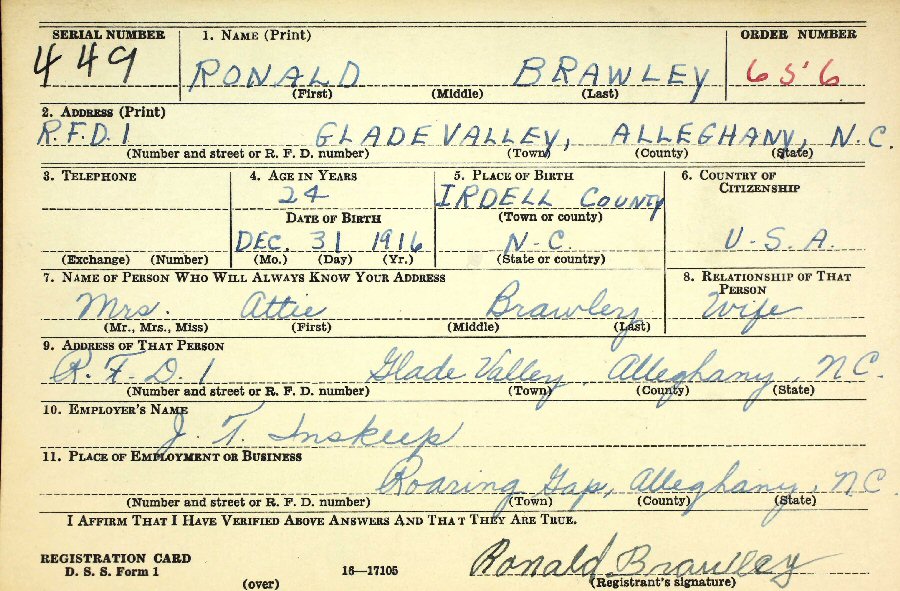 SERIAL NUMBER 1. NAME (Print) ORDER NUMBER
449 RONALD BRAWLEY 656
(First) (Middle) (Last)
2. ADDRESS (Print)
R.F.D. 1 GLADE VALLEY, ALLEGHANY, N.C.
(Number and street or R. F. D. number) (Town) (County) (State)
3. TELEPHONE 4. AGE IN YEARS 5. PLACE OF BIRTH 6. COUNTRY OF CITIZENSHIP
24 IRDELL COUNTY
DATE OF BIRTH (Town or county)
DEC. 31 1916 N-C. U.S.A.
(Exchange) (Number) (Mo.) (Day) (Yr.) (State or country)
7. NAME OF PERSON WHO WILL ALWAYS KNOW YOUR ADDRESS 8. RELATIONSHIP OF THAT PERSON
Mrs. Attie Brawley Wife
(Mr., Mrs., Miss) (First) (Middle) (Last)
9. ADDRESS OF THAT PERSON
R. F. D. 1 Glade Valley, Alleghany, NC.
(Number and street or R. F. D. number) (Town) (County) (State)
10. EMPLOYER'S NAME
J. T. Inskeep
11. PLACE OF EMPLOYMENT OR BUSINESS
Roaring Gap, Alleghany, NC
(Number and street or R. F. D. number) (Town) (County) (State)
I AFFIRM THAT I HAVE VERIFIED ABOVE ANSWERS AND THAT THEY ARE TRUE.
REGISTRATION CARD
D. S. S. Form 1 16—17105 Ronald Brawley
(over) (Registrant's signature)